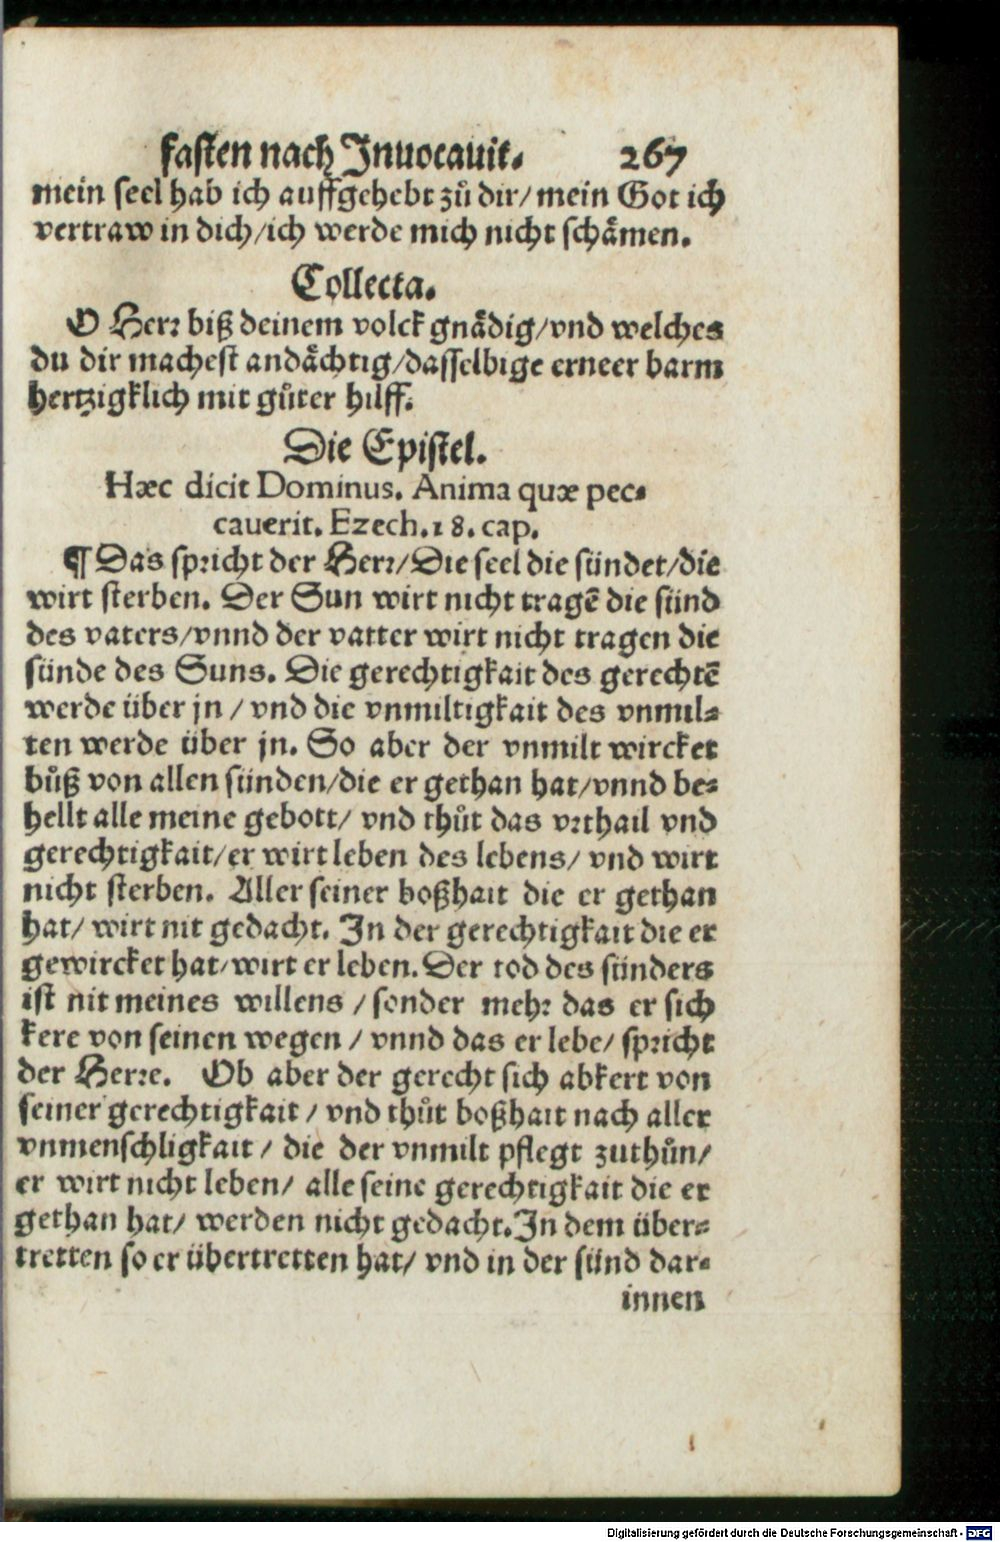 fasten nach Inuocauit. 267
mein seel hab ich auffgehebt zuͦ dir/mein Got ich
vertraw in dich/ich werde mich nicht schaͤmen.
Collecta.
O Herr biß deinem volck gnaͤdig/vnd welches
du dir machest andaͤchtig/dasselbige erneer barm
hertzigklich mit guͦter hilff.
Die Epistel.
Hæc dicit Dominus. Anima quæ pec-
cauerit. Ezech.18.cap.
¶ Das spricht der Herr/Die seel die sündet/die
wirt sterben. Der Sun wirt nicht tragē die sünd
des vaters/vnnd der vatter wirt nicht tragen die
sünde des Suns. Die gerechtigkait des gerechtē
werde über jn / vnd die vnmiltigkait des vnmil-
ten werde über jn. So aber der vnmilt wircket
buͦß von allen sünden/die er gethan hat/vnnd be-
hellt alle meine gebott/ vnd thuͦt das vrthail vnd
gerechtigkait/er wirt leben des lebens/ vnd wirt
nicht sterben. Aller seiner boßhait die er gethan
hat/ wirt nit gedacht. In der gerechtigkait die er
gewircket hat/wirt er leben. Der tod des sünders
ist nit meines willens / sonder mehr das er sich
kere von seinen wegen / vnnd das er lebe/ spricht
der Herre. Ob aber der gerecht sich abkert von
seiner gerechtigkait / vnd thuͦt boßhait nach aller
vnmenschligkait / die der vnmilt pflegt zuthuͦn/
er wirt nicht leben/ alle seine gerechtigkait die er
gethan hat/ werden nicht gedacht. In dem über-
tretten so er übertretten hat/ vnd in der sünd dar-
innen
Digitalisierung gefördert durch die Deutsche Forschungsgemeinschaft - DFG